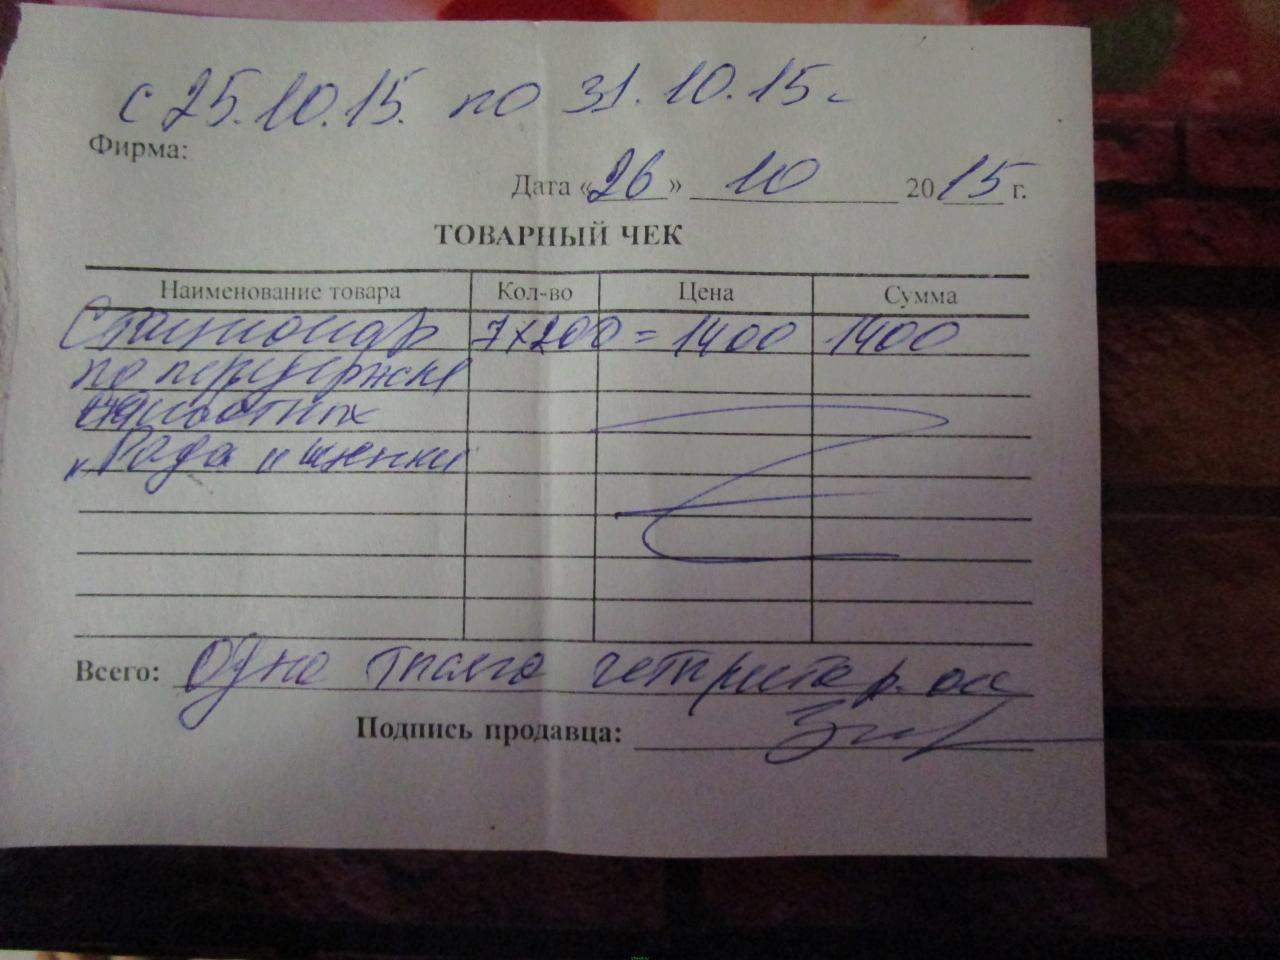 с 25.10.15. по 31.10.15г
Фирма:
Дата «26» 10 2015 г.
ТОВАРНЫЙ ЧЕК
Наименование товара Кол-во Цена Сумма
Стационар 7х200 = 1400 1400
по передержке
животных
"Рада и щенки
Всего: Одна тысяча четыриста р. оо
Подпись продавца: